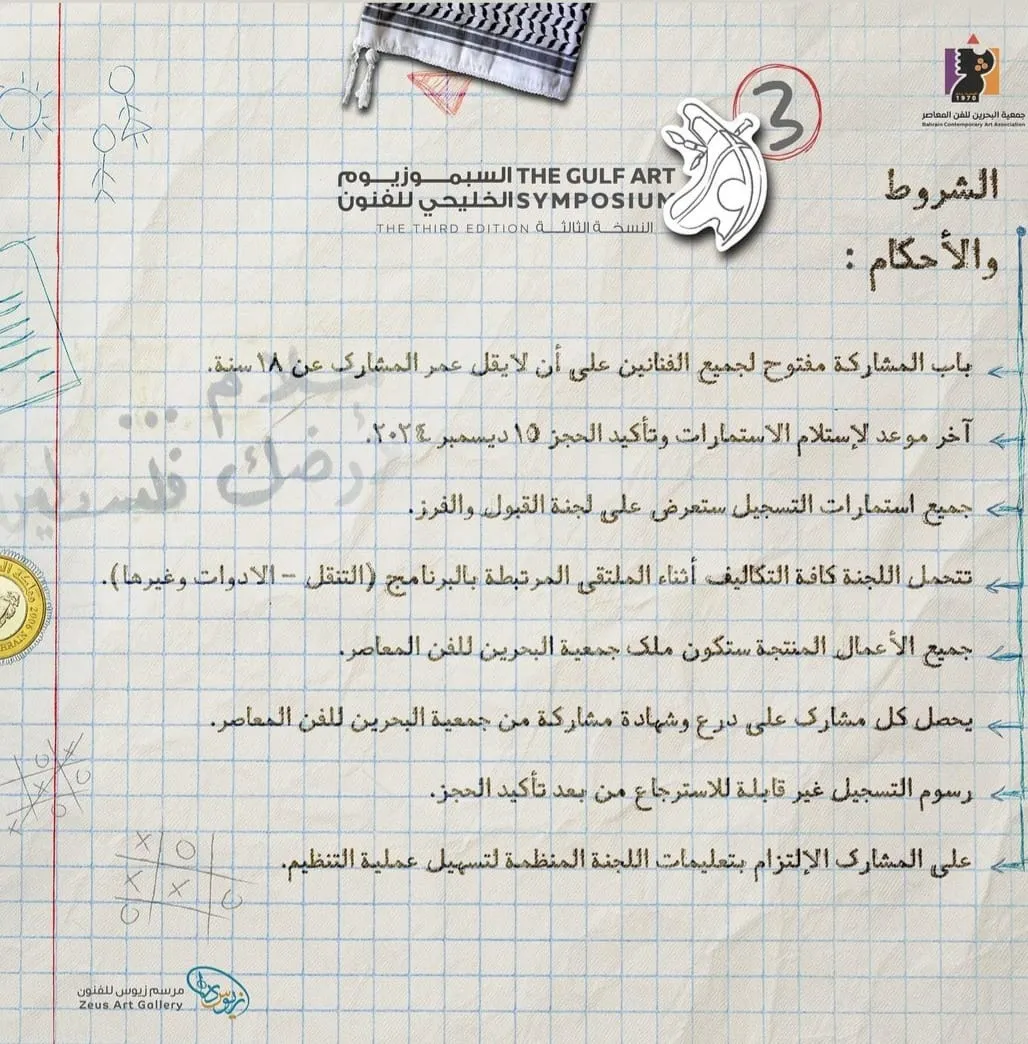 3
1970
جمعية البحرين للفن المعاصر
Bahrain Contemporary Art Association
السيموزيوم THE GULF ART
الخليجي للفنون SYMPOSIUM
THE THIRD EDITION النسخة الثالثة
الشروط
والأحكام :
باب المشاركة مفتوح لجميع الفنانين على أن لايقل عمر المشارك عن ١٨ سنة.
آخر موعد لإستلام الاستمارات وتأكيد الحجز ١٥ ديسمبر ٢٠٢٤.
جميع استمارات التسجيل ستعرض على لجنة القبول والفرز.
تتحمل اللجنة كافة التكاليف أثناء الملتقى المرتبطة بالبرنامج (التنقل – الادوات وغيرها).
جميع الأعمال المنتجة ستكون ملك جمعية البحرين للفن المعاصر.
يحصل كل مشارك على درع وشهادة مشاركة من جمعية البحرين للفن المعاصر.
رسوم التسجيل غير قابلة للاسترجاع من بعد تأكيد الحجز.
على المشارك الإلتزام بتعليمات اللجنة المنظمة لتسهيل عملية التنظيم.
سلام ...
أرضك فلسطين
2006
X O
X X O
O
زيوس
مرسم زيوس للفنون
Zeus Art Gallery